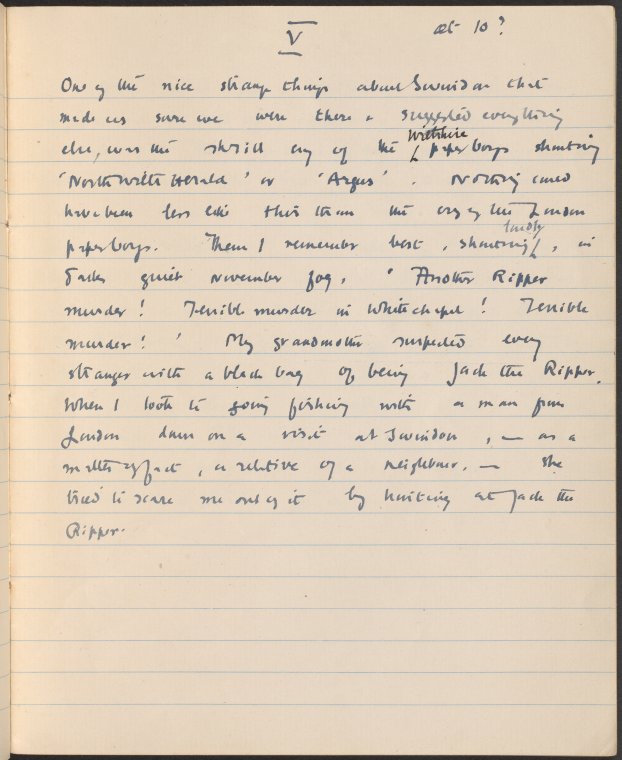 V
æt 10?
One of the nice strange things about Swindon that
made us sure we were there & suggested everything
else, was the shrill cry of the Wiltshire paperboys shouting
'North Wilts Herald' or 'Argus'. Nothing could
have been less like this than the cry of the London
paperboys. Them I remember best, shouting loudly, in
dark quiet November fog, 'Another Ripper
murder! Terrible murder in Whitechapel! Terrible
murder!' My grandmother suspected every
stranger with a black bag of being Jack the Ripper.
When I took to going fishing with a man from
London down on a visit at Swindon, — as a
matter of fact, a relative of a neighbour, — she
tried to scare me out of it by hinting at Jack the
Ripper.